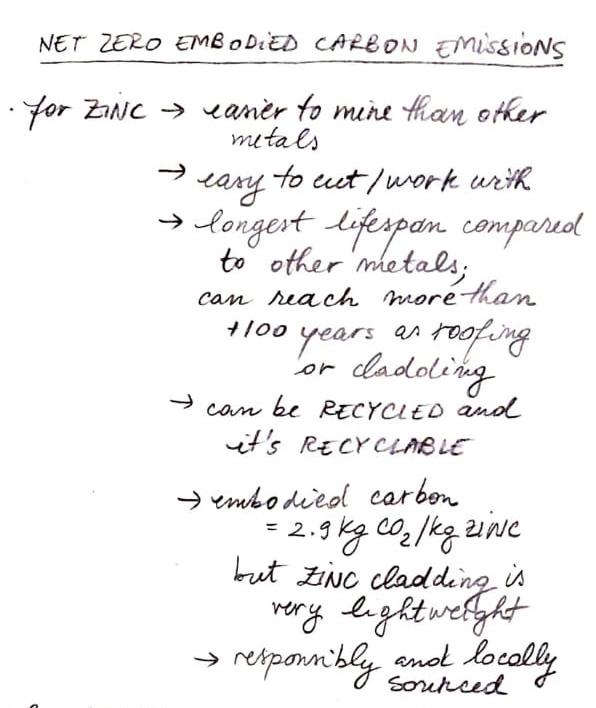 NET ZERO EMBODIED CARBON EMISSIONS
· for ZINC → easier to mine than other
metals
→ easy to cut / work with
→ longest lifespan compared
to other metals;
can reach more than
+100 years as roofing
or cladding
→ can be RECYCLED and
it's RECYCLABLE
→ embodied carbon
= 2.9 kg CO₂/kg ZINC
but ZINC cladding is
very lightweight
→ responsibly and locally
sourced